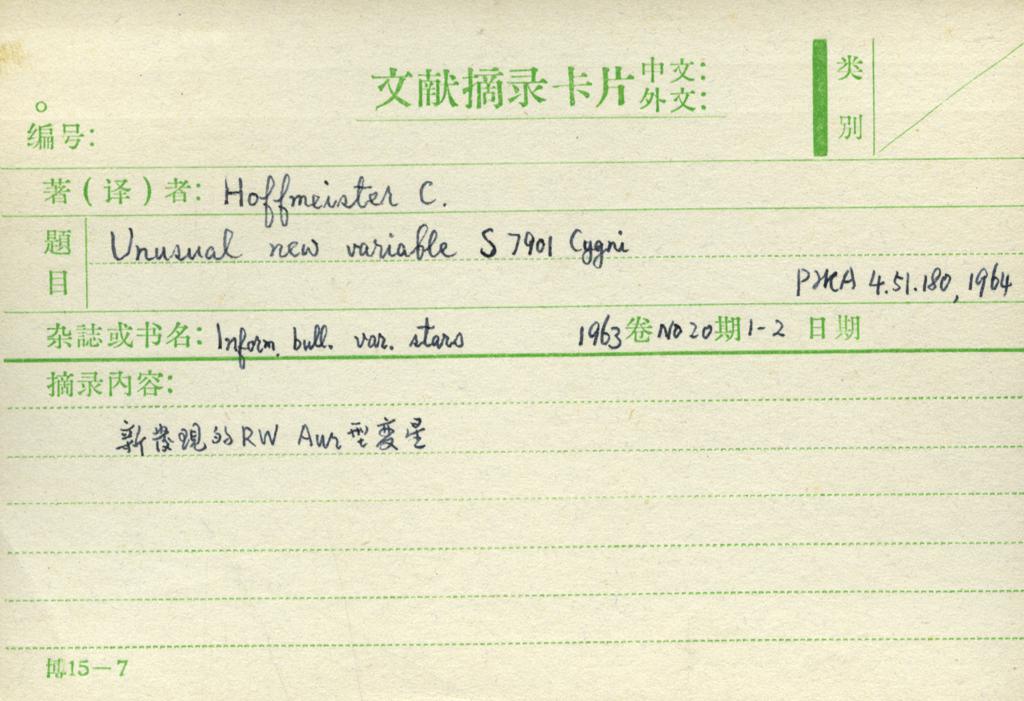 文献摘录卡片 中文: 外文:
类别
编号:
著(译)者: Hoffmeister C.
题目 Unusual new variable S 7901 Cygni
РЖА 4.51.180, 1964
杂誌或书名: Inform. bull. var. stars 1963卷 No 20期 1-2 日期
摘录内容:
新發現的RW Aur型変星
博15—7